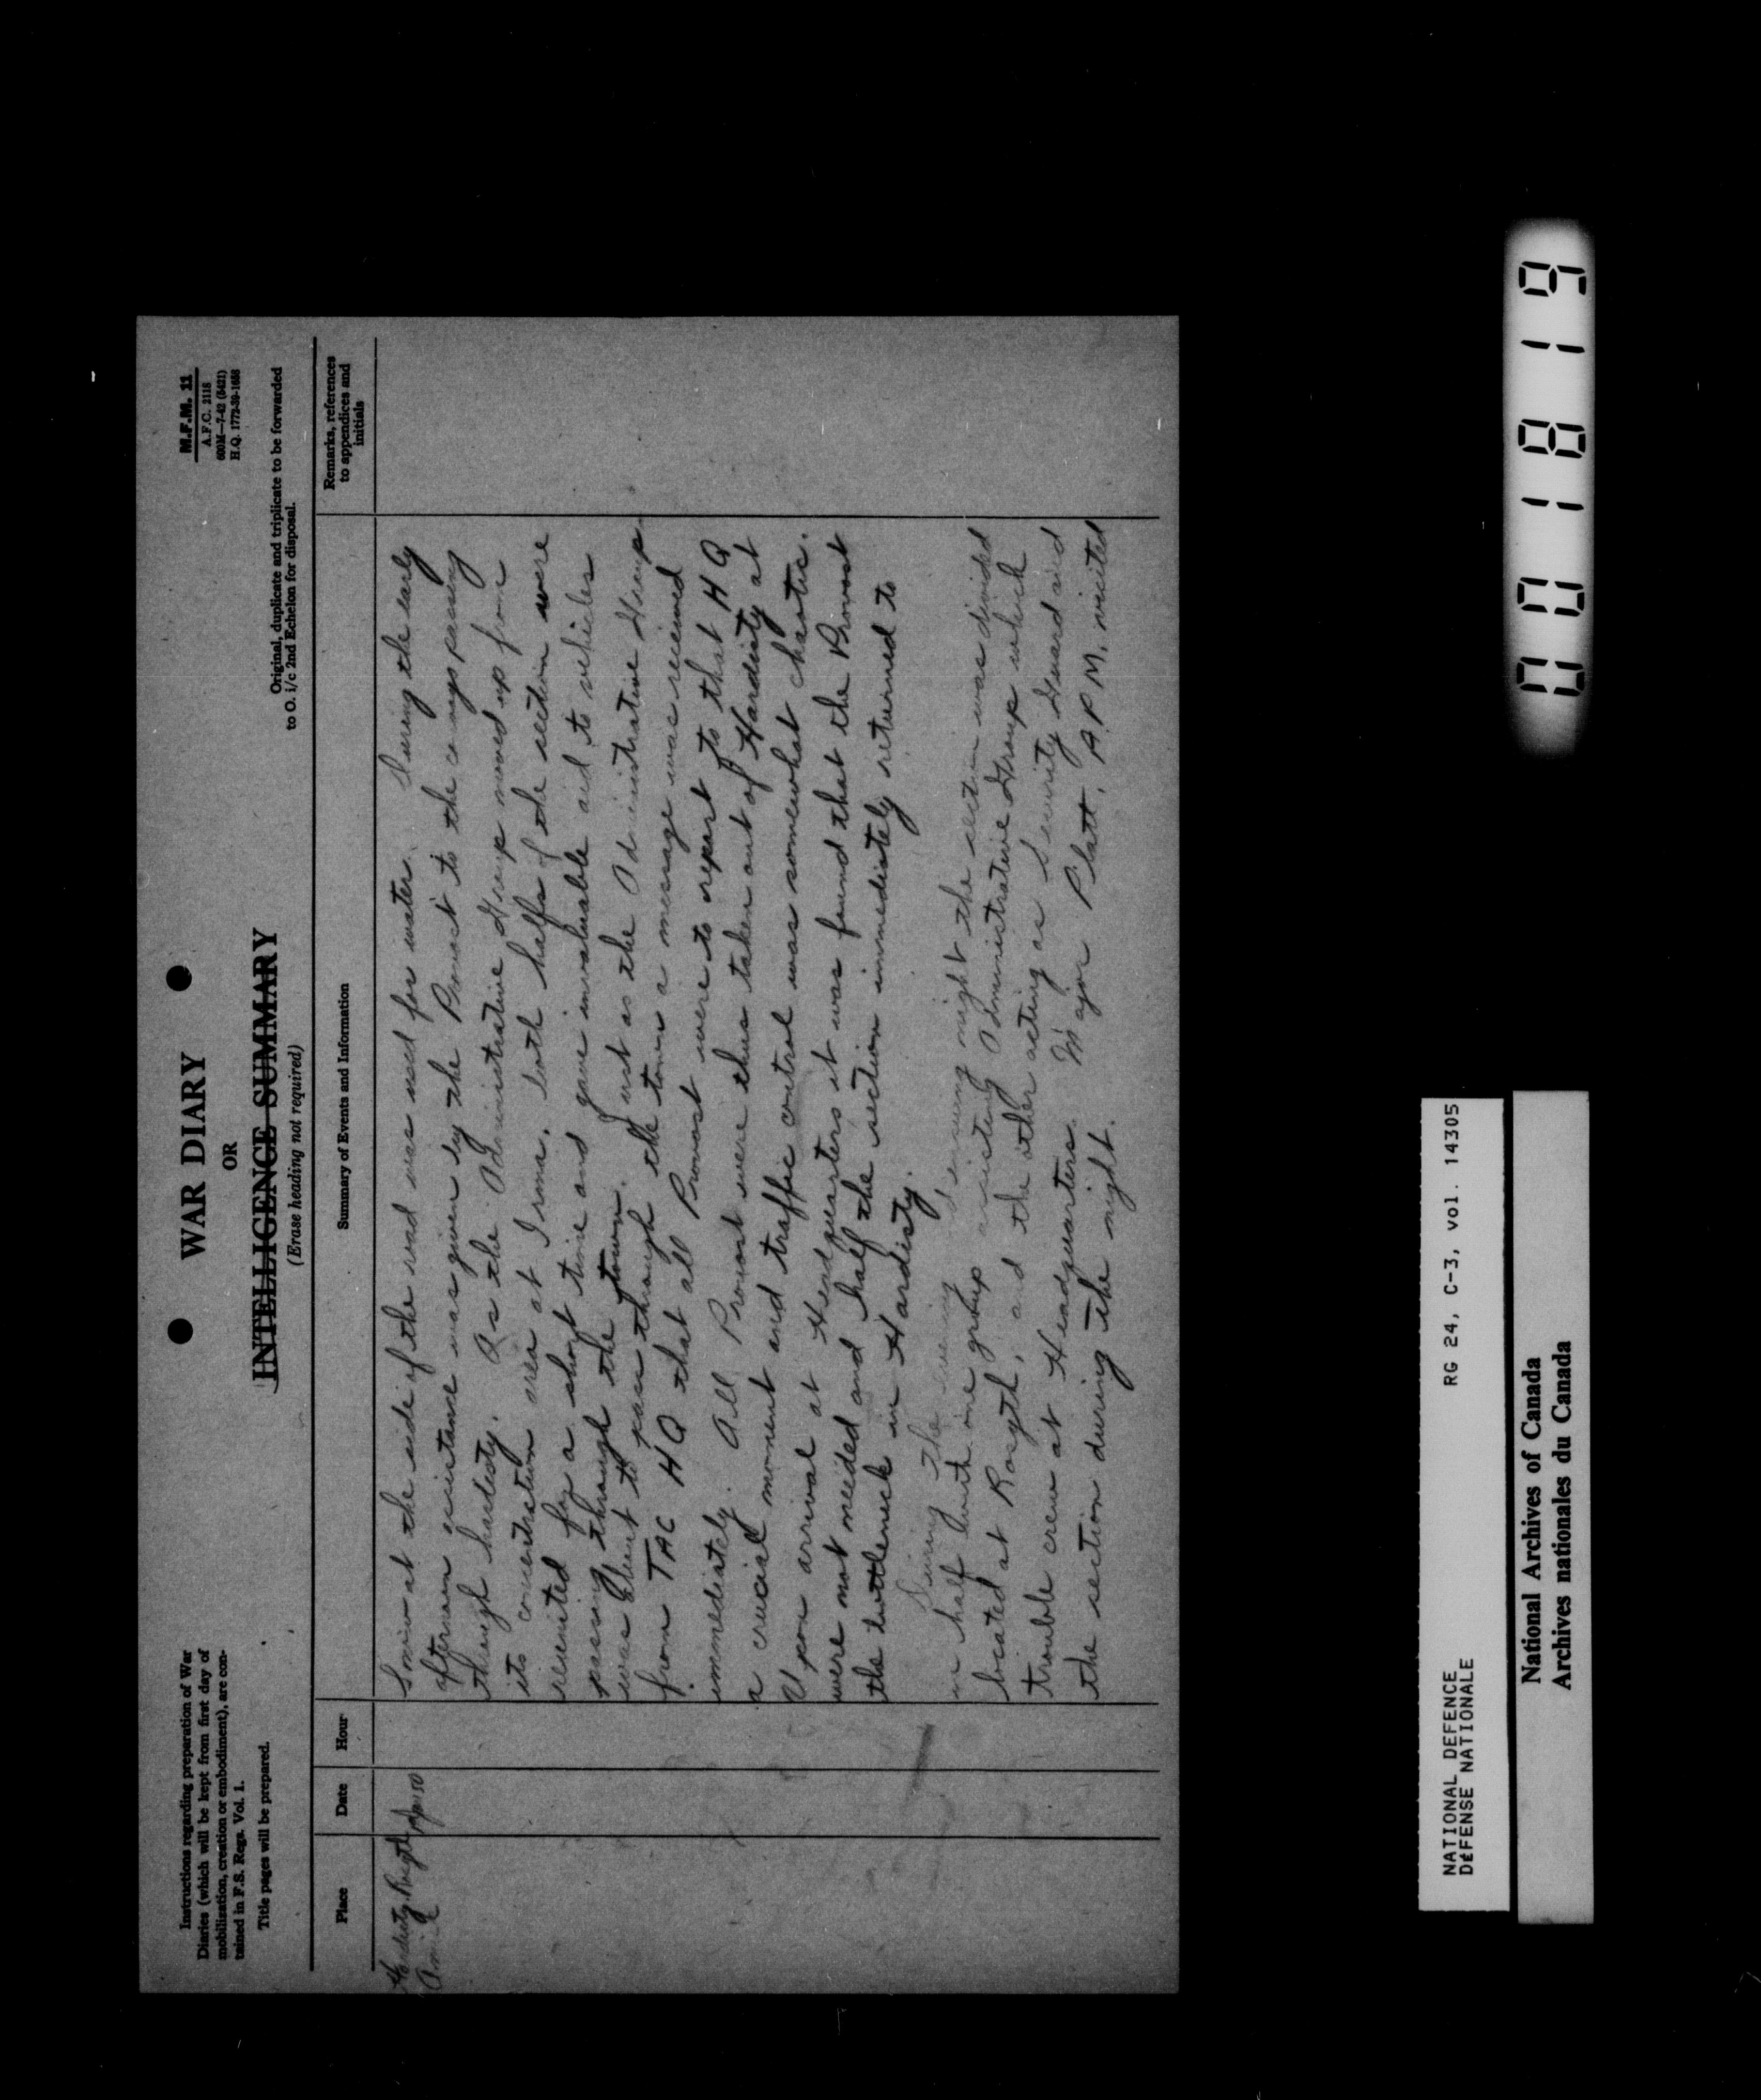 Instructions regarding preparation of War
Diaries (which will be kept from first day of
mobilization, creation or embodiment), are con-
tained in F.S. Regs. Vol. 1.
Title pages will be prepared.
WAR DIARY
OR
INTELLIGENCE SUMMARY
(Erase heading not required)
M.F.M. 11
A.F.C. 2118
600M—7-42 (5421)
H.Q. 1772-39-1658
Original, duplicate and triplicate to be forwarded
to O. i/c 2nd Echelon for disposal.
Place
Date
Hour
Summary of Events and Information
Remarks, references
to appendices and
initials
Hardisty Rosyth
at the side of the road was used for water. During the early
afternoon assistance was given by the Provost to the convoys passing
through hardisty. As the Administrative Group moved up from
its concentration area at Irma, both halfs of the section were
reunited for a short time and gave invaluable aid to vehicles
passing through the town. Just as the Administrative Group
was about to pass through the town a message was received
from TAC HQ that all Provost were to report to that HQ
immediately. All Provost were thus taken out of Hardisty at
a crucial moment and traffic control was somewhat chaotic.
Upon arrival at Headquarters it was found that the Provost
were not needed and half the section immediately returned to
the bottleneck in Hardisty.
During the evening ensuing night the section was divided
in half with one group assisting Administrative Group which
located at Rosyth, and the other acting as Security Guard and
trouble crew at Headquarters. Major Platt, A.P.M. visited
the section during the night.
NATIONAL DEFENCE
DÉFENSE NATIONALE
RG 24, C-3, vol. 14305
National Archives of Canada
Archives nationales du Canada
001819